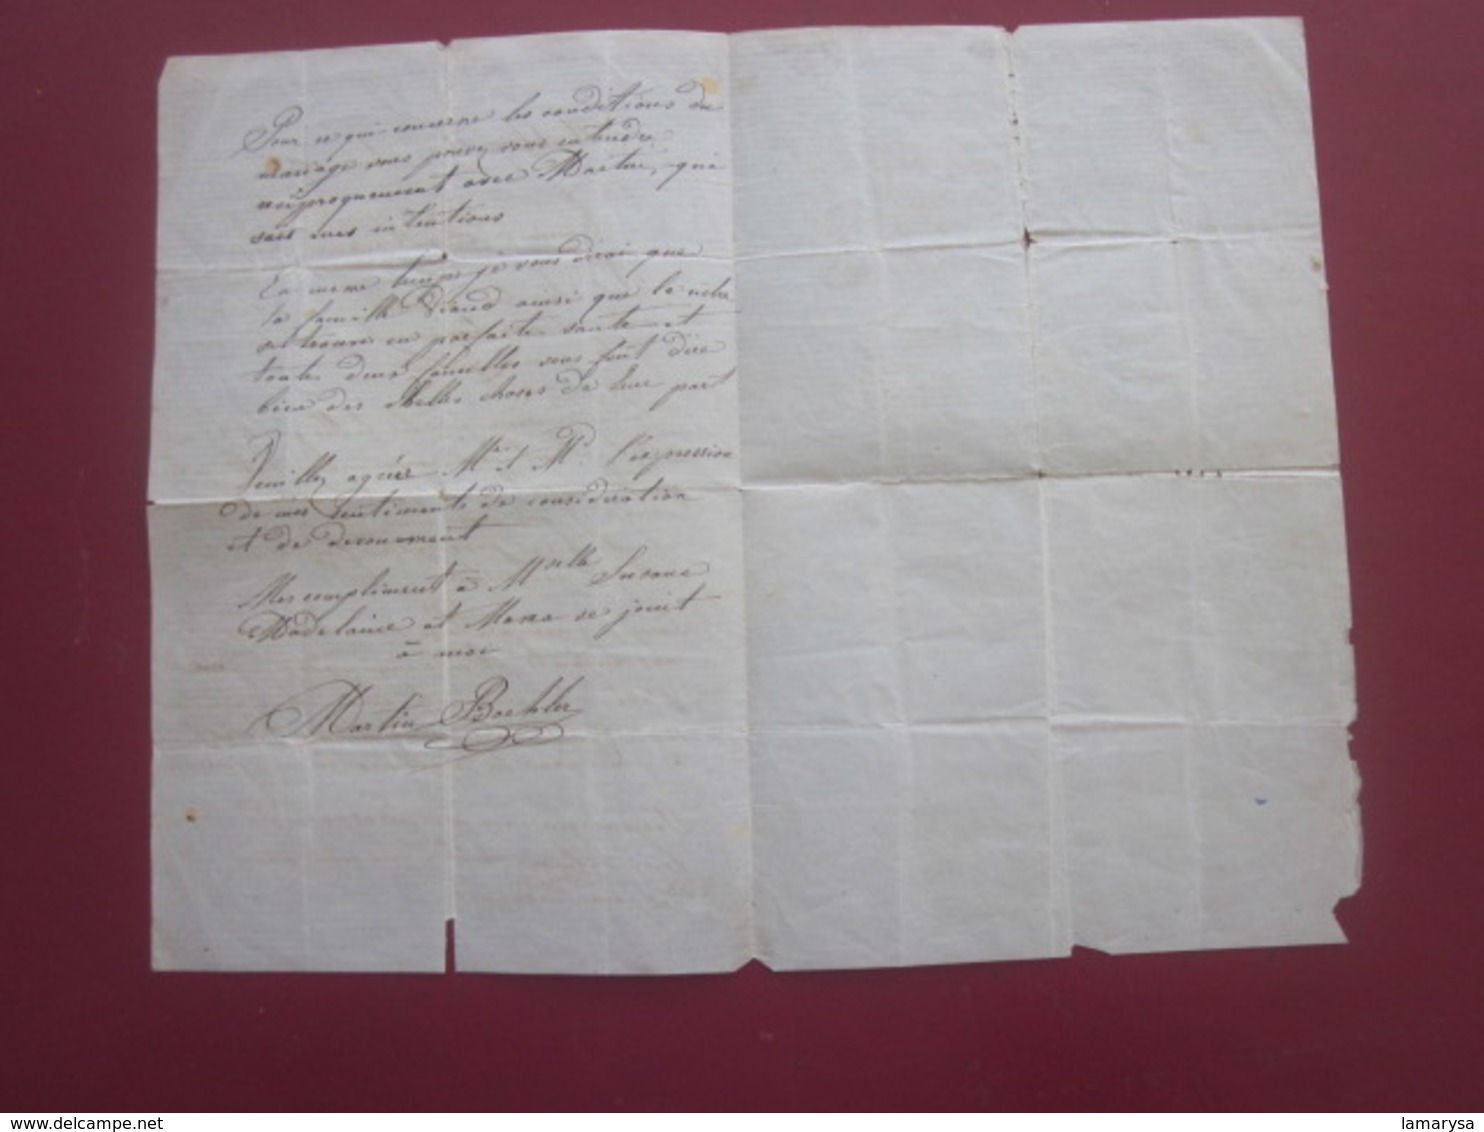 Pour ce qui concerne les conditions du
mariage vous pouvez vous entendre
reciproquement avec Martin, qui
sais mes intentions
En meme temps je vous dirai que
la famille ainsi que la notre
se trouve en parfaite sante et
toute deux familles vous font dire
bien des belles choses de leur part
Veuillez agréer Mr et Me l'expression
de mes sentiments de consideration
et de devouement
Mes compliment à Mselle Susane
Madelaine et Mama se joint
à moi
Martin Boehler
delcampe.net
lamarysa